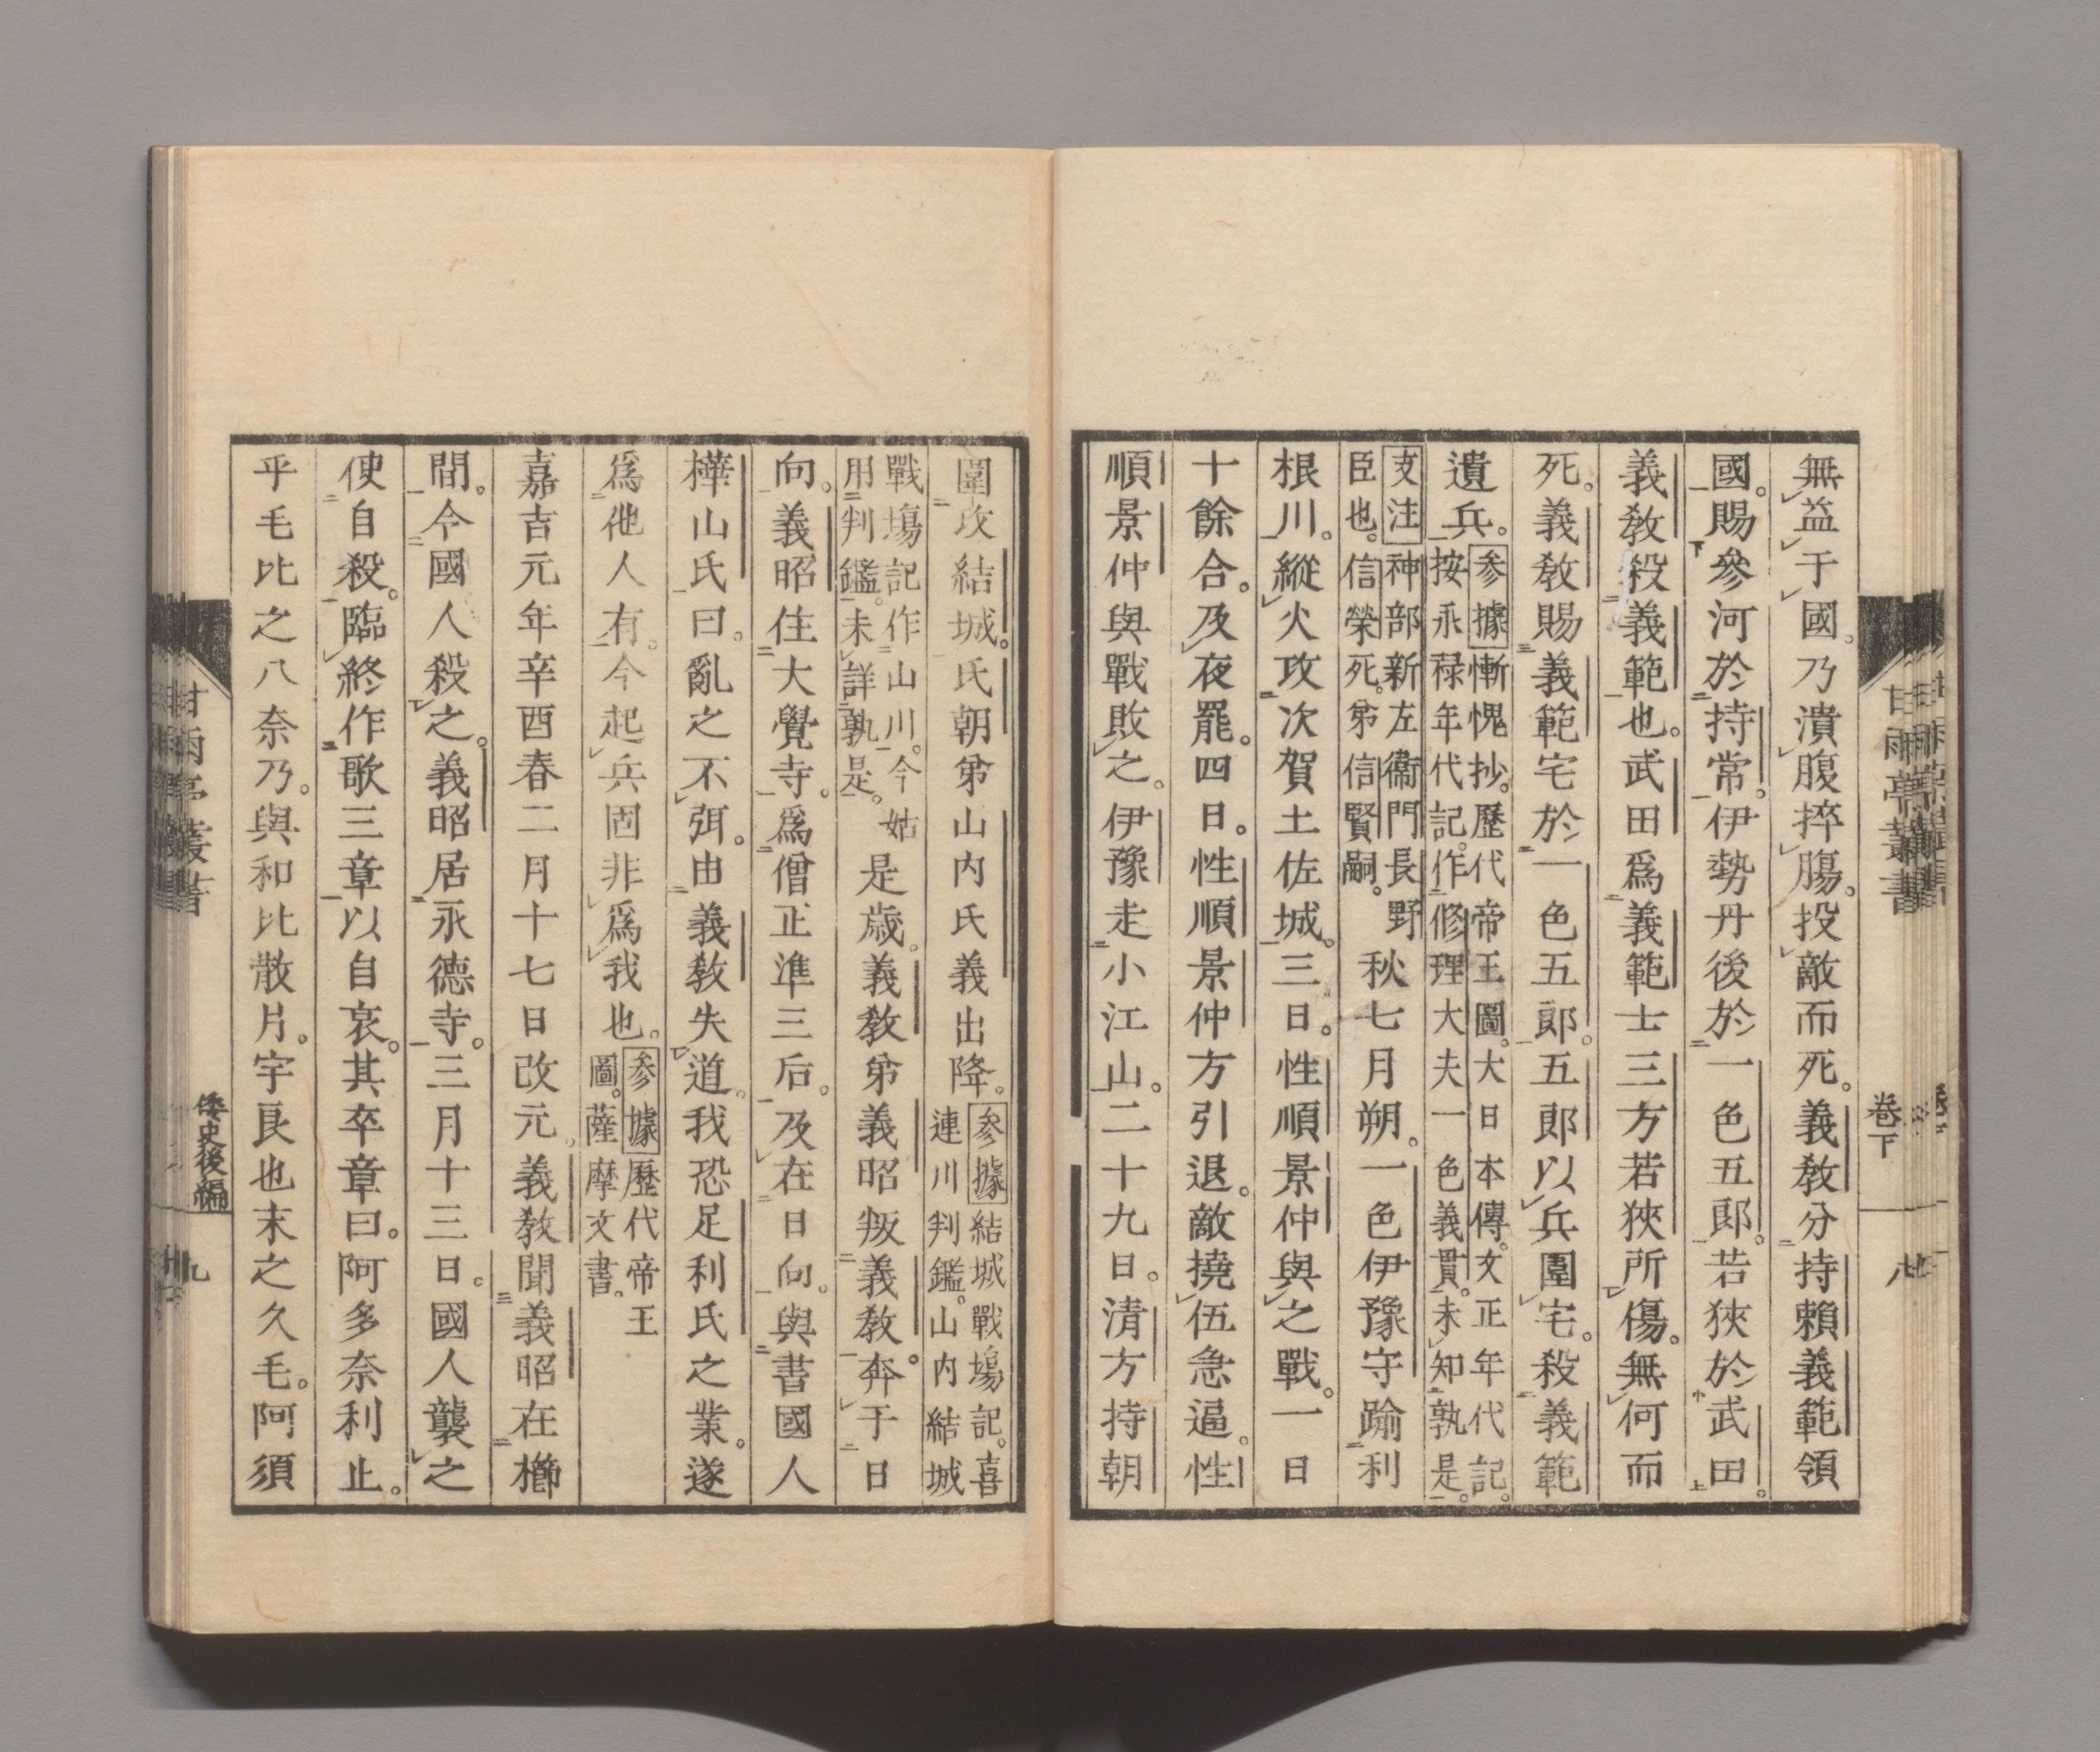 無益于國。乃潰腹捽腸。投敵而死。義教分持賴義範領
國。賜參河於持常。伊勢丹後於一色五郎。若狹於武田。
義教殺義範也。武田爲義範士三方若狹所傷。無何而
死。義教賜義範宅於一色五郎。五郎以兵圍宅。殺義範
遺兵。
参據慚愧抄。歷代帝王圖。大日本傳。文正年代記。
按永禄年代記。作修理大夫一色義貫。未知孰是。
支注神部新左衞門長野
臣也。信榮死。弟信賢嗣。
秋七月朔。一色伊豫守踰利
根川。縱火攻次賀土佐城。三日。性順景仲與之戰。一日
十餘合。及夜罷。四日。性順景仲方引退。敵撓伍急逼。性
順景仲與戰敗之。伊豫走小江山。二十九日。清方持朝
圍攻結城。氏朝弟山内氏義出降。
参據結城戰塲記。喜
連川判鑑。山内結城
戰塲記作山川。今姑
用判鑑。未詳孰是。
是歲。義教弟義昭叛義教。奔于日
向。義昭住大覺寺。爲僧正準三后。及在日向。與書國人
樺山氏曰。亂之不弭。由義教失道。我恐足利氏之業。遂
爲他人有。今起兵固非爲我也。
参據歷代帝王
圖。薩摩文書。
嘉吉元年辛酉春二月十七日改元。義教聞義昭在櫛
間。今國人殺之。義昭居永德寺。三月十三日。國人襲之
使自殺。臨終作歌三章以自哀。其卒章曰。阿多奈利止。
乎毛比之八奈乃。與和比散片。宇良也末之久毛。阿須
甘雨亭叢書
卷下
八
甘雨亭叢書
倭史後編
九